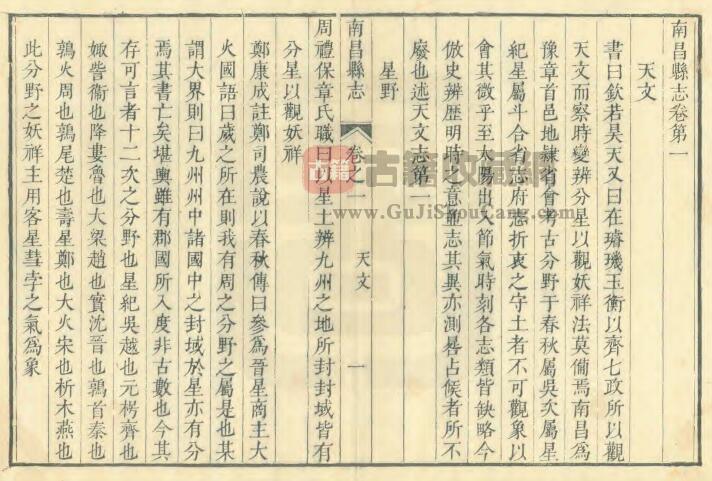 南昌縣志卷第一
天文
書曰欽若昊天又曰在璿璣玉衡以齊七政所以觀
天文而察時變辨分星以觀妖祥法莫備焉南昌爲
豫章首邑地隸省會考古分野于春秋屬吳次屬星
紀星屬斗合省志府志折衷之守土者不可觀象以
會其微乎至太陽出入節氣時刻各志類皆缺略今
倣史辨歷明時之意並志其異亦測晷占候者所不
廢也述天文志第一
星野
南昌縣志
卷之一
天文
一
周禮保章氏職曰以星土辨九州之地所封封域皆有
分星以觀妖祥
鄭康成註鄭司農說以春秋傳曰參爲晉星商主大
火國語曰歲之所在則我有周之分野之屬是也某
謂大界則曰九州州中諸國中之封域於星亦有分
焉其書亡矣堪輿雖有郡國所入度非古數也今其
存可言者十二次之分野也星紀吳越也元枵齊也
娵訾衞也降婁魯也大梁趙也實沈晉也鶉首秦也
鶉火周也鶉尾楚也壽星鄭也大火宋也析木燕也
此分野之妖祥主用客星彗孛之氣爲象
古籍
古籍收藏網
www.GuJiShouCang.com